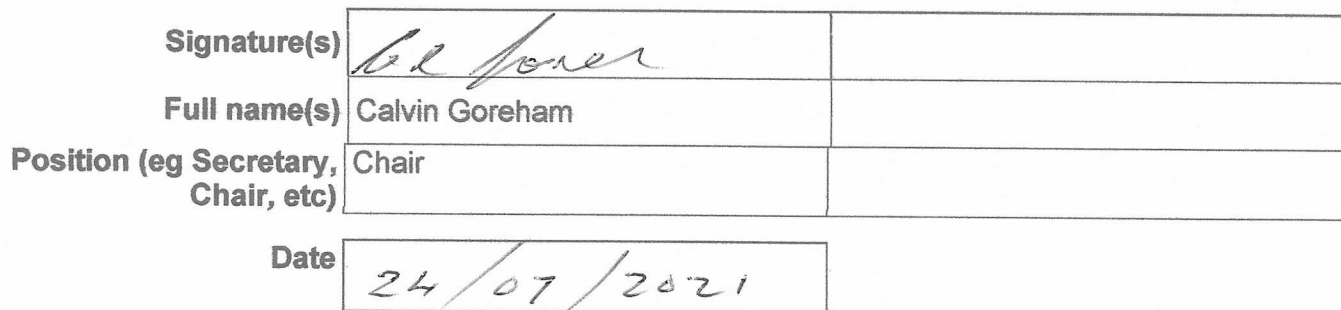 Signature(s)
Full name(s) Calvin Goreham
Position (eg Secretary, Chair
Chair, etc)
Date 24/07/2021